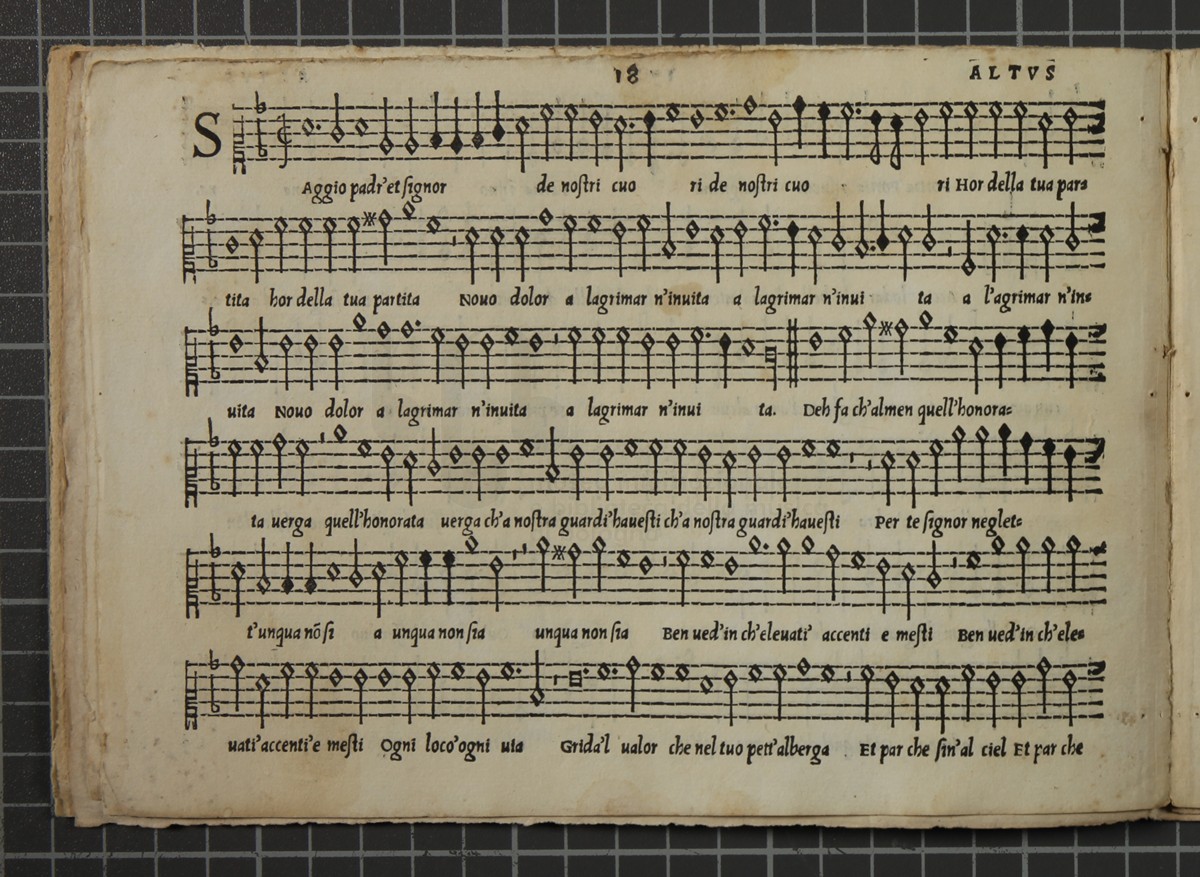 18 ALTVS
SAggio padr'et signor de nostri cuo ri de nostri cuo ri Hor della tua par=
tita hor della tua partita Nouo dolor a lagrimar n'inuita a lagrimar n'inui ta a l'agrimar n'in=
uita Nouo dolor a lagrimar n'inuita a lagrimar n'inui ta. Deh fa ch'almen quell'honora=
ta uerga quell'honorata uerga ch'a nostra guardi'hauesti ch'a nostra guardi'hauesti Per te signor neglet=
t'unqua nõ si a unqua non sia unqua non sia Ben ued'in ch'eleuati' accenti e mesti Ben ued'in ch'ele=
uati'accenti'e mesti Ogni loco'ogni uia Grida'l ualor che nel tuo pett'alberga Et par che sin'al ciel Et par che